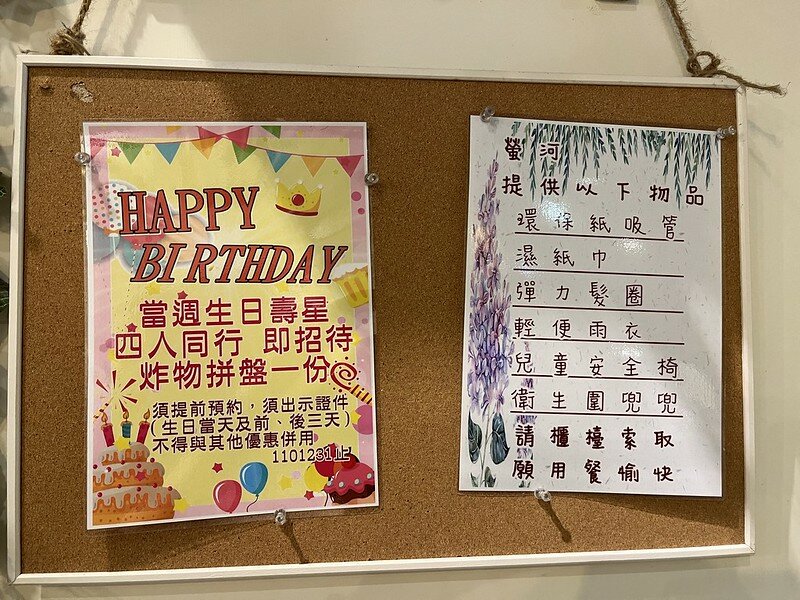 HAPPY
BIRTHDAY
當週生日壽星
四人同行 即招待
炸物拼盤一份
須提前預約，須出示證件
(生日當天及前、後三天)
不得與其他優惠併用
1101231止
螢河
提供以下物品
環保紙吸管
濕紙巾
彈力髮圈
輕便雨衣
兒童安全椅
衛生圍兜兜
請櫃檯索取
願用餐愉快